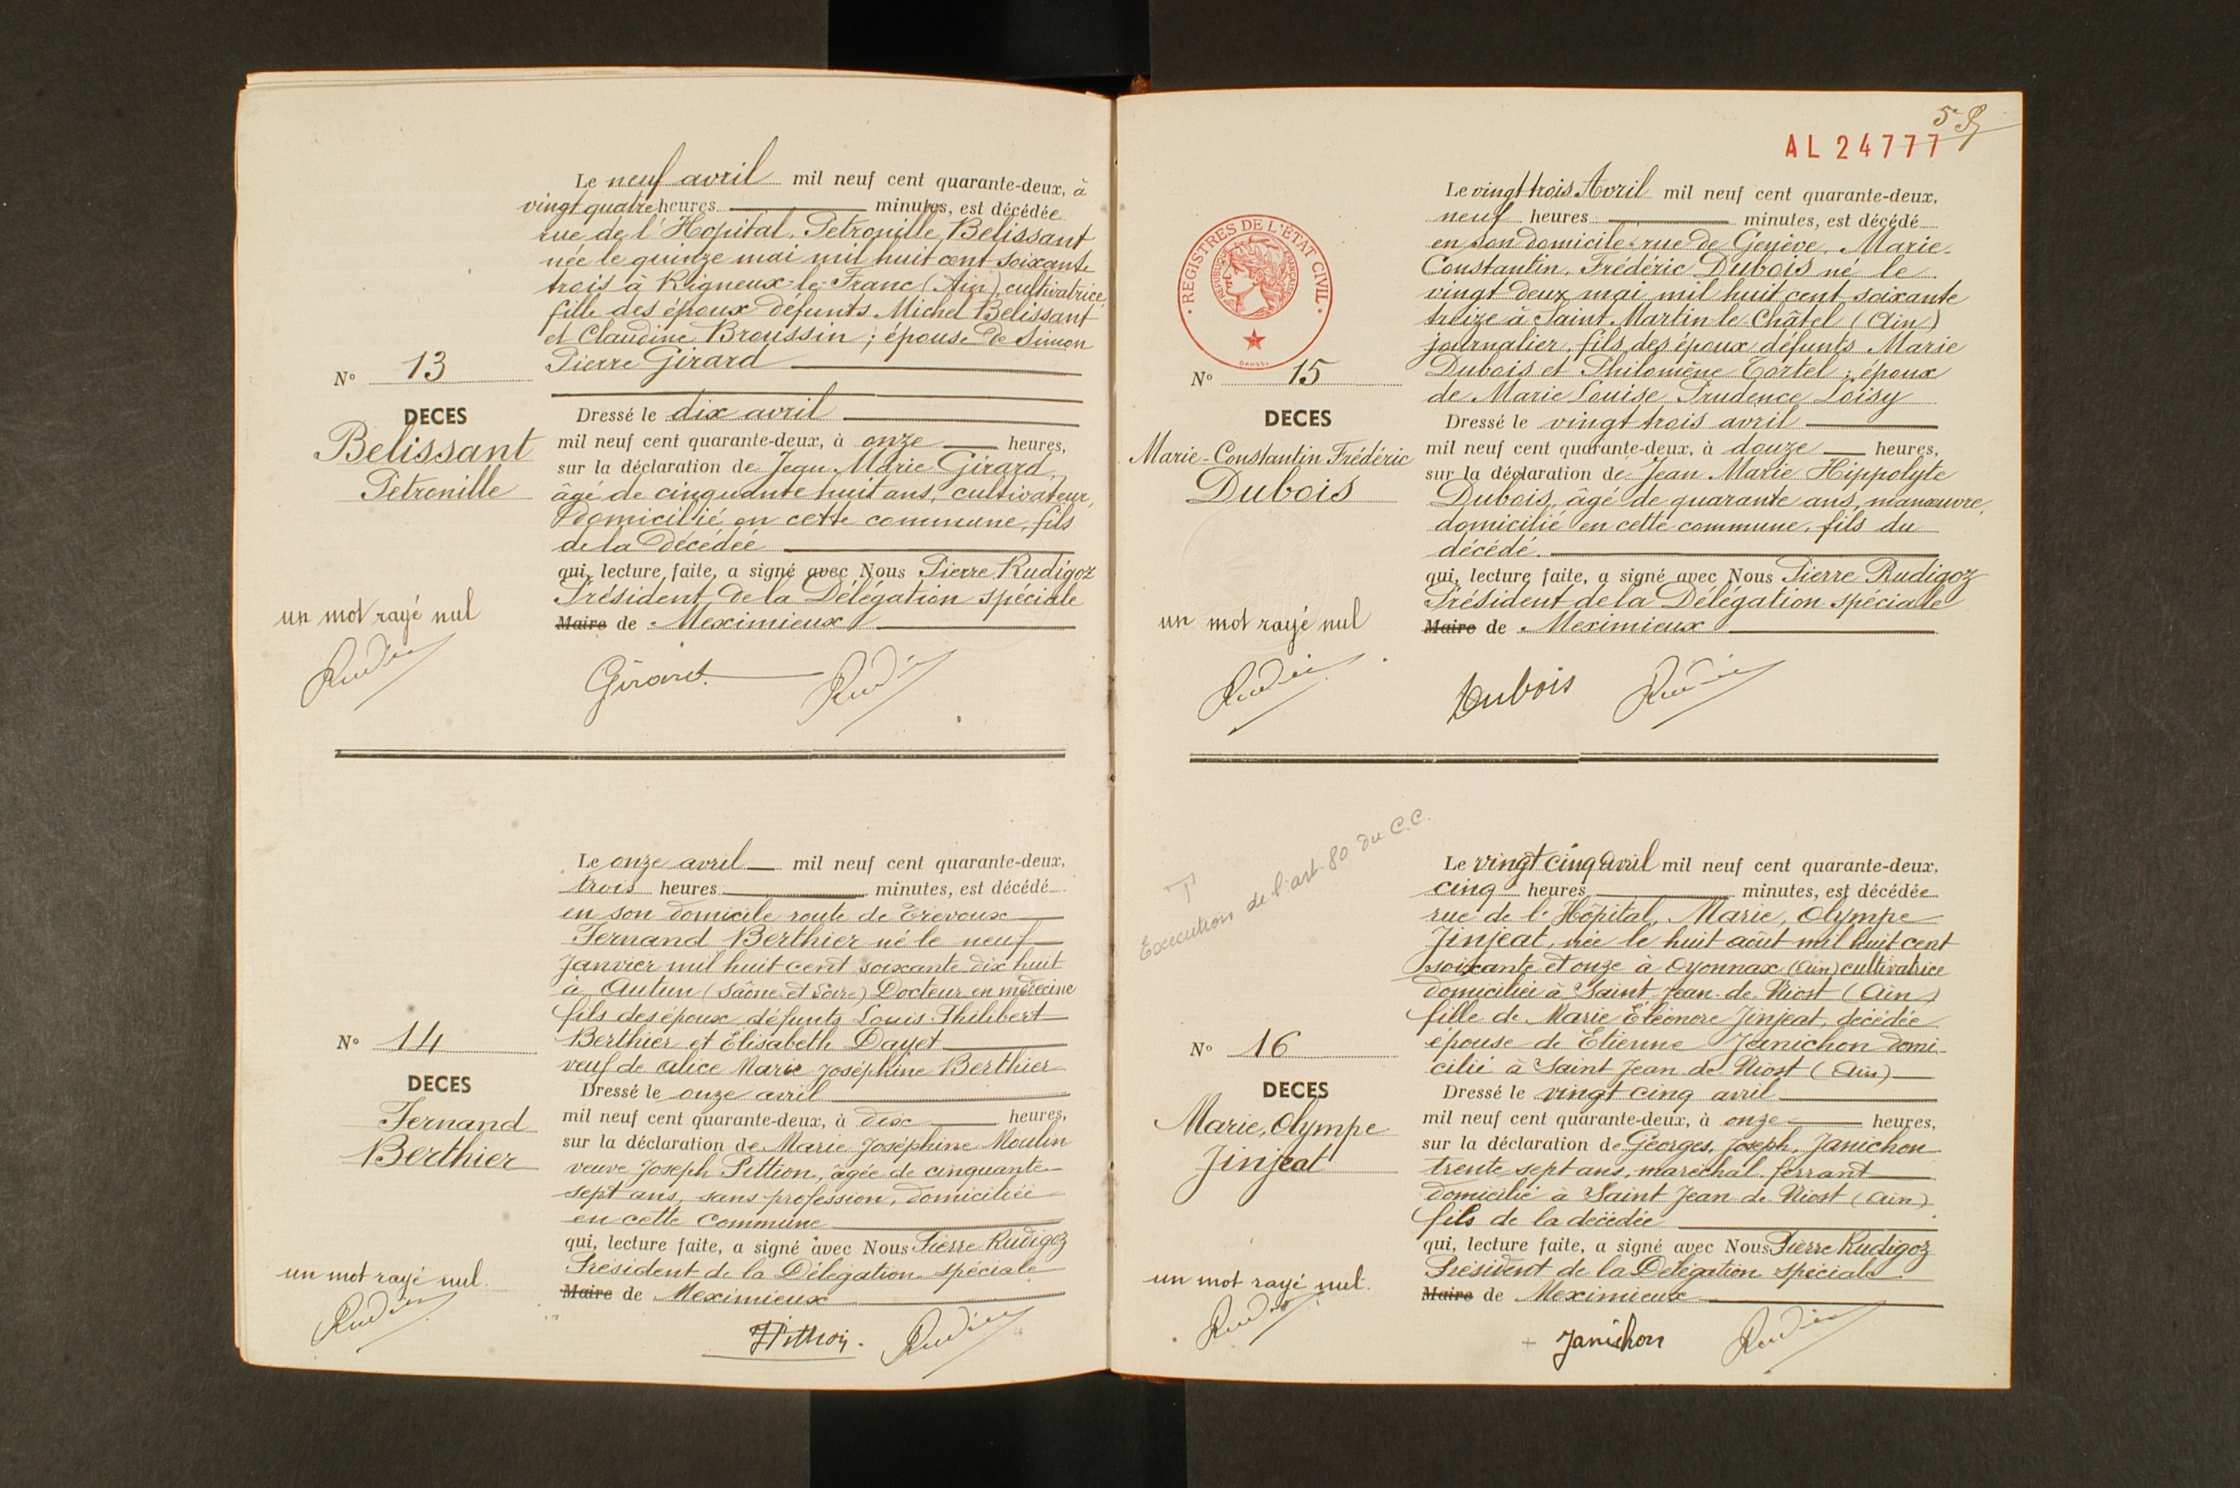 Le neuf avril mil neuf cent quarante-deux, à
vingt quatre heures minutes, est décédée
rue de l'Hopital, Petronille Belissant
née le quinze mai mil huit cent soixante
trois à Rigneux-le-Franc (Ain) cultivatrice,
fille des époux défunts Michel Belissant
et Claudine Broussin ; épouse de Simon
Pierre Girard
N° 13
DECES
Belissant
Petronille
Dressé le dix avril
mil neuf cent quarante-deux, à onze heures,
sur la déclaration de Jean Marie Girard,
âgé de cinquante huit ans, cultivateur,
domicilié en cette commune, fils
de la décédée
qui, lecture faite, a signé avec Nous Pierre Rudigoz
Président de la Délégation spéciale
Maire de Meximieux
un mot rayé nul
Girard
Le onze avril mil neuf cent quarante-deux,
trois heures minutes, est décédé
en son domicile route de Trevoux
Fernand Berthier né le neuf
Janvier mil huit cent soixante dix huit
à Autun (Saône et Loire) Docteur en médecine
fils des époux défunts Louis Philibert
Berthier et Élisabeth Dayet
veuf de Alice Marie Joséphine Berthier
N° 14
DECES
Fernand
Berthier
Dressé le onze avril
mil neuf cent quarante-deux, à dix heures,
sur la déclaration de Marie Joséphine Moulin
veuve Joseph Pittion, âgée de cinquante
sept ans, sans profession, domiciliée
en cette commune
qui, lecture faite, a signé avec Nous Pierre Rudigoz
Président de la Délégation spéciale
Maire de Meximieux
un mot rayé nul.
AL 24777
REGISTRES DE L'ETAT CIVIL
Le vingt trois Avril mil neuf cent quarante-deux,
neuf heures minutes, est décédé
en son domicile rue de Genève, Marie-
Constantin, Frédéric Dubois né le
vingt deux mai mil huit cent soixante
treize à Saint-Martin-le-Châtel (Ain)
journalier, fils des époux défunts Marie
Dubois et Philomène Tortel ; époux
de Marie Louise Prudence Loisy
N° 15
DECES
Marie-Constantin Frédéric
Dubois
Dressé le vingt trois avril
mil neuf cent quarante-deux, à douze heures,
sur la déclaration de Jean Marie Hippolyte
Dubois, âgé de quarante ans, manœuvre,
domicilié en cette commune, fils du
décédé.
qui, lecture faite, a signé avec Nous Pierre Rudigoz
Président de la Délégation spéciale
Maire de Meximieux
un mot rayé nul
Dubois
Exécution de l'art. 80 du C.C.
Le vingt cinq avril mil neuf cent quarante-deux,
cinq heures minutes, est décédée
rue de l'Hôpital, Marie, Olympe
Jinjeat, née le huit août mil huit cent
soixante et onze à Oyonnax (Ain) cultivatrice
domiciliée à Saint-Jean-de-Niost (Ain)
fille de Marie Éléonore Jinjeat, décédée
épouse de Etienne Janichon domi-
cilié à Saint Jean de Niost (Ain)
N° 16
DECES
Marie, Olympe
Jinjeat
Dressé le vingt cinq avril
mil neuf cent quarante-deux, à onze heures,
sur la déclaration de Georges, Joseph, Janichon
trente sept ans, maréchal ferrant
domicilié à Saint Jean de Niost (Ain)
fils de la décédée
qui, lecture faite, a signé avec Nous Pierre Rudigoz
Président de la Délégation spéciale
Maire de Meximieux
un mot rayé nul.
Janichon